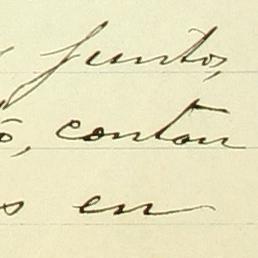 Juntos,
ó, contan
s en